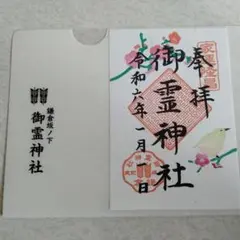 奉拝
御霊神社
令和六年一月一日
鎌倉坂ノ下
御霊神社